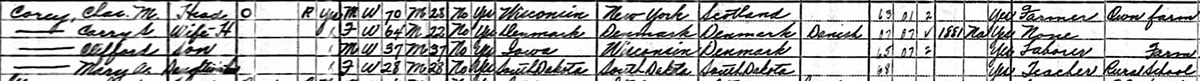 Corey, Chas. M. Head O R Yes M W 70 M 28 No Yes Wisconsin New York Scotland 63 01 2 Yes Farmer Own farm
— Carry S. Wife-H F W 64 M 22 No Yes Denmark Denmark Denmark Danish 07 07 V 1881 Na Yes None
— Clifford Son M W 37 M 37 No Yes Iowa Wisconsin Denmark 65 07 2 Yes Laborer Farm
— Mary A. F W 28 M 28 No Yes South Dakota South Dakota South Dakota 68 Yes Teacher Rural School